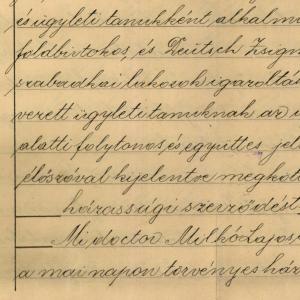 és ügyleti tanukként alkalmi
földbirtokos, és Deutsch Zsigm
szabadkai lakosok igazoltá
verett ügyleti tanuknak az
alatti folytonos, és együttes jel
élőszóval kijelentve megköt
házassági szerződést
Mi doctor Milkó Lajos
a mai napon törvényes há